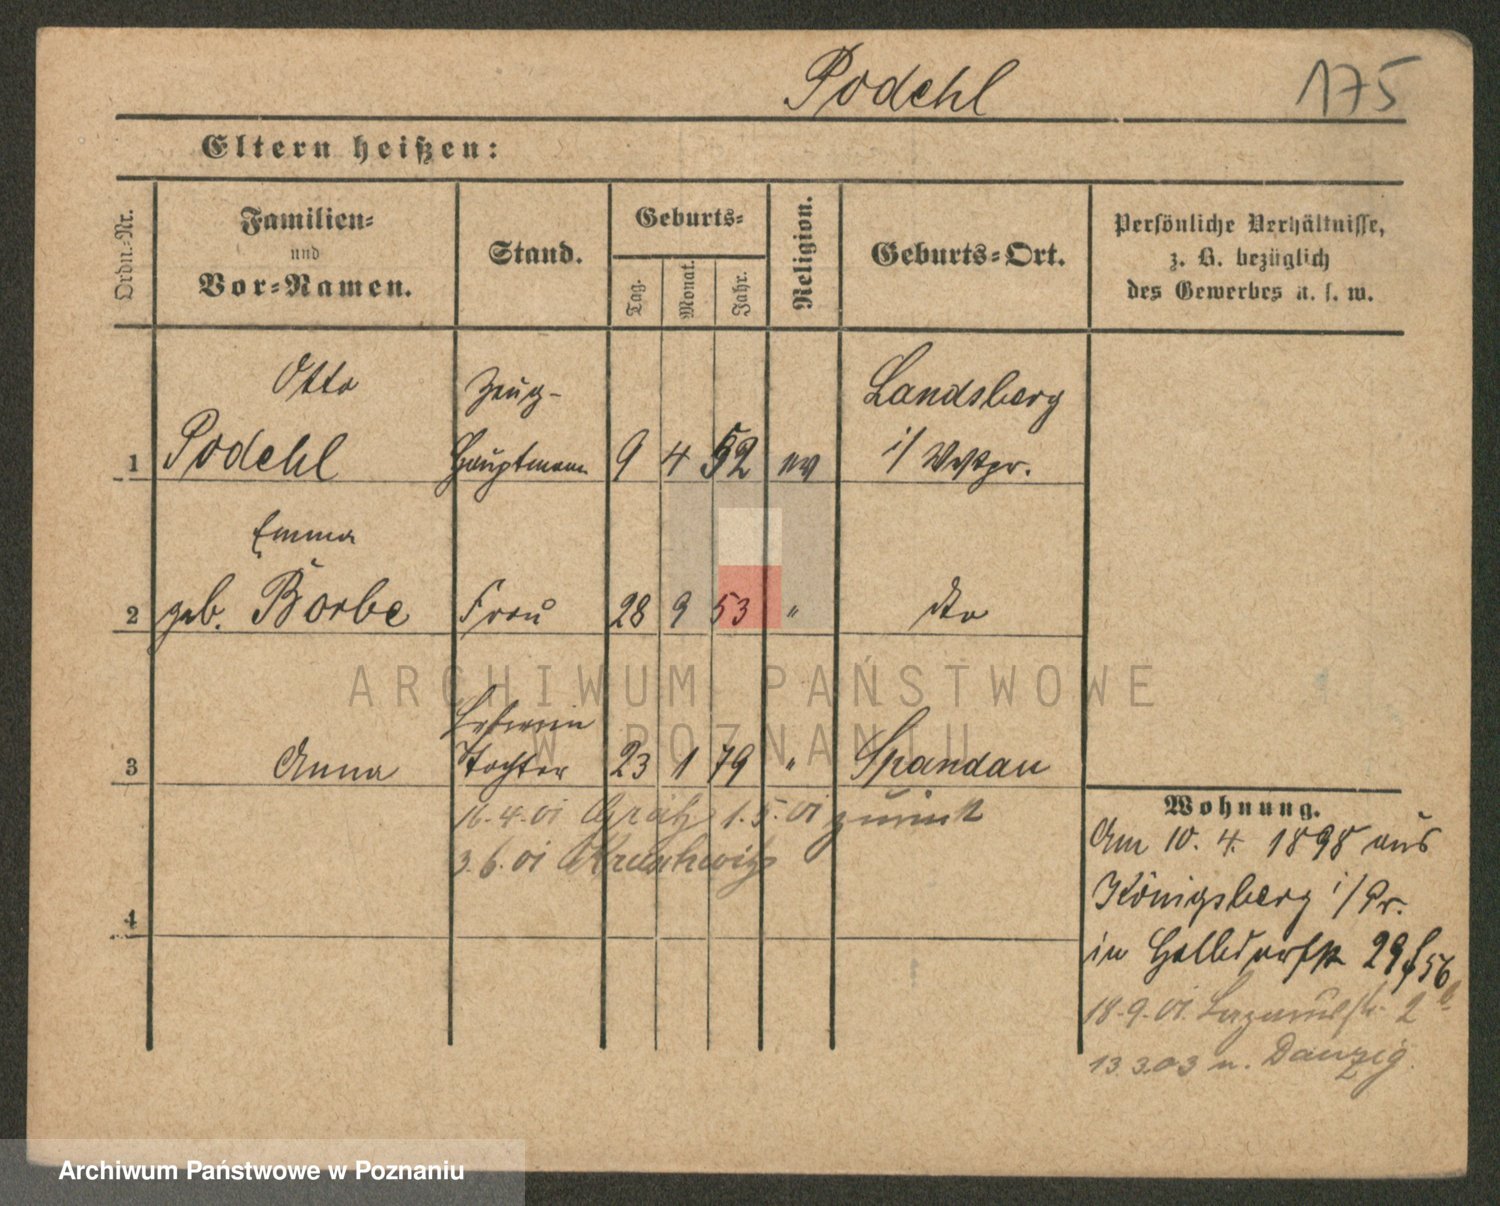 Podehl 175
Eltern heißen:
Ordn.-Nr.
Familien-
und
Vor-Namen.
Stand.
Geburts-
Tag.
Monat.
Jahr.
Religion.
Geburts-Ort.
Persönliche Verhältnisse,
z. B. bezüglich
des Gewerbes u. s. w.
Otto Zeug- Landsberg
1 Podehl Hauptmann 9 4 52 ev i/ Wstpr.
Emma
2 geb. Borbe Frau 28 9 53 " dto
Lehrerin
3 Anna Tochter 23 1 79 " Spandau
16.4.01 Grätz 1.5.01 zurück
3.6.01
4
Wohnung.
Am 10. 4. 1898 aus
Königsberg i/Pr.
in 29
18.9.01. Lazarusstr. 2
13.3.03 n. Danzig
ARCHIWUM PAŃSTWOWE
W POZNANIU
Archiwum Państwowe w Poznaniu